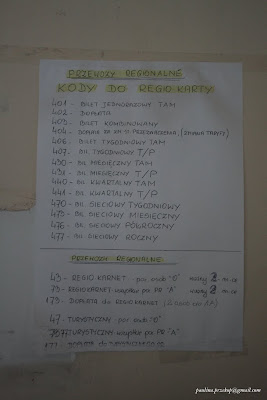 PRZEWOZY REGIONALNE
KODY DO REGIO KARTY
401 - BILET JEDNORAZOWY TAM
402 - DOPŁATA
403 - BILET KOMBINOWANY
404 - DOPŁATA ZA ZM. (ZMIANA TARYFY)
406 - BILET TYGODNIOWY TAM
407 - BIL. TYGODNIOWY T/P
430 - BIL. MIESIĘCZNY TAM
431 - BIL. MIESIĘCZNY T/P
440 - BIL. KWARTALNY TAM
441 - BIL. KWARTALNY T/P
470 - BIL. SIECIOWY TYGODNIOWY
475 - BIL. SIECIOWY MIESIĘCZNY
476 - BIL. SIECIOWY PÓŁROCZNY
477 - BIL. SIECIOWY ROCZNY
PRZEWOZY REGIONALNE
43 - REGIO KARNET - poc. osob "O" 2
79 - REGIO KARNET - wszystkie poc. PR "A" 2
173 - DOPŁATA do REGIO KARNET
47 - TURYSTYCZNY - poc. osob "O"
TURYSTYCZNY - wszystkie poc. PR "A"
177 DOPŁATA do TURYSTYCZNEGO
paulina.przekop@gmail.com